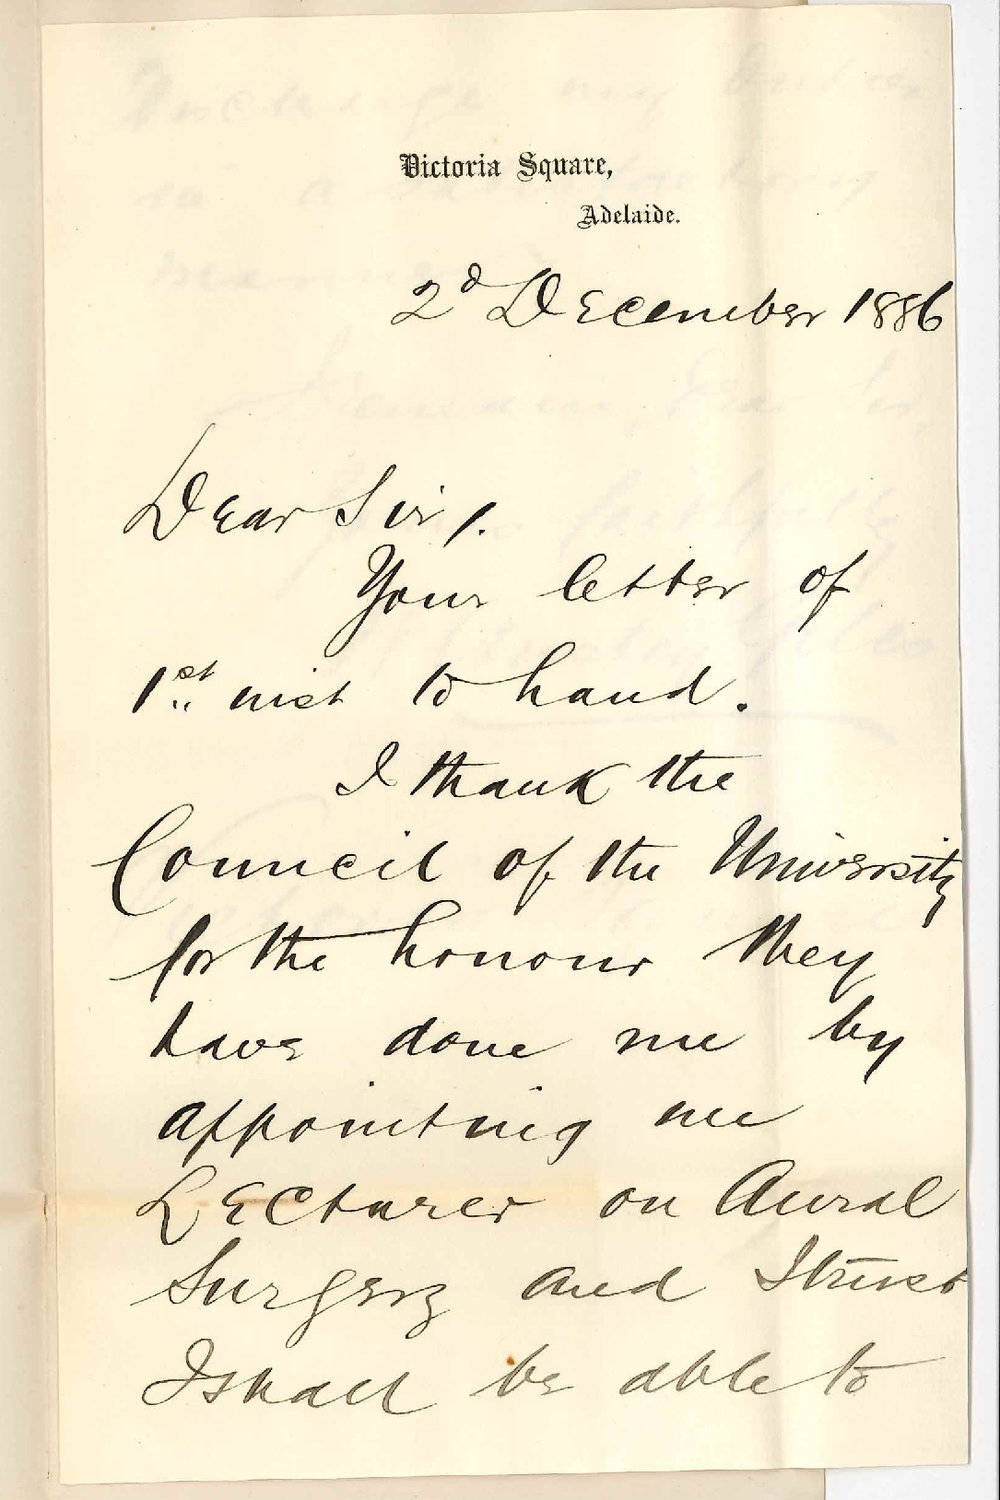 Victoria Square,
Adelaide.
2d December 1886
Dear Sir/.
Your letter of
1st inst to hand.
I thank the
Council of the University
for the honour they
have done me by
appointing me
Lecturer on Aural
Surgery and I trust
I shall be able to